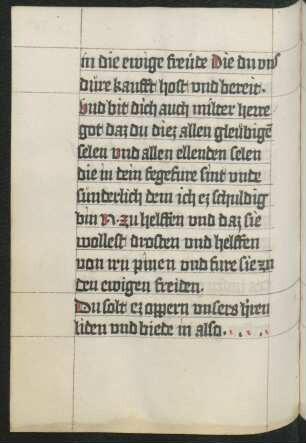 in die ewige freüde Die du vns
düre kaufft host vnd bereit.
Vnd bit dich auch milter herre
got daz du diez allen gleübigē
selen vnd allen ellenden selen
die in dein fegefure sint vnde
sünderlich dem ich ez schuldig
bin N. zu helffen vnd daz sie
wollest drosten vnd helffen
von irn pinen vnd fure sie zu
den ewigen freiden.
Du solt ez oppern vnsers hren
liden vnd biede in also.